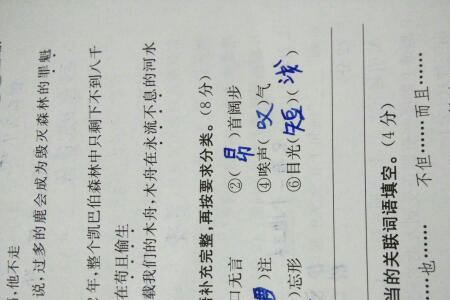 ，他不走
说，过多的鹿会成为毁灭森林的罪魁
年，整个凯巴伯森林中只剩下不到八千
在苟且偷生
载我们的木舟，木舟在永流不息的河水
补充完整，再按要求分类。(8分)
口无言 ②(昂)首阔步
)注 ④唉声(叹)气
)忘形 ⑥目光(短)(浅)
当的关联词语填空。(4分)
……也…… 不但……而且……